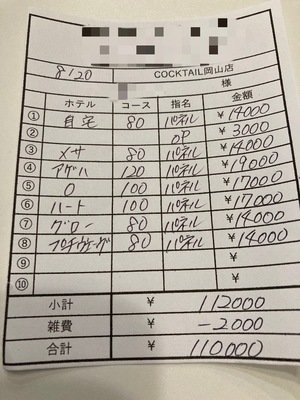 8/20
COCKTAIL岡山店
様
ホテル コース 指名 金額
① 自宅 80 パネル ¥14000
② OP ¥3000
③ メサ 80 パネル ¥14000
④ アゲハ 120 パネル ¥19000
⑤ O 100 パネル ¥17000
⑥ ハート 100 パネル ¥17000
⑦ グロー 80 パネル ¥14000
⑧ 80 パネル ¥14000
⑨ ¥
⑩ ¥
小計 ¥ 112000
雑費 ¥ -2000
合計 ¥ 110000